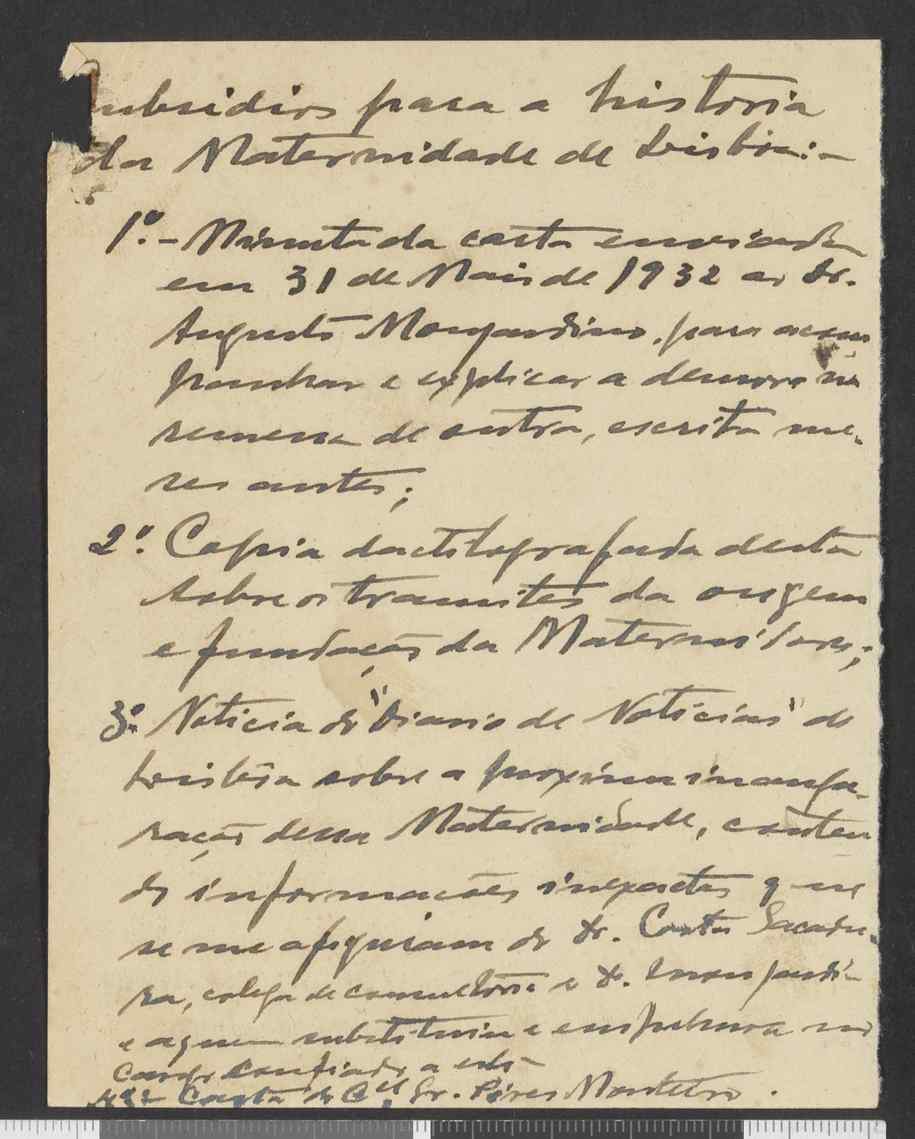 ubsidios para a historia
da Maternidade de Lisbôa:-
1º.- Minuta da carta enviada
em 31 de Maio de 1932 ao Dr.
Augusto Monjardino, para acom
panhar e explicar a demora na
remessa de outra, escrita me-
ses antes;
2º. Copia dactilografada desta
sobre os tramites da origem
e fundação da Maternidade;
3º. Noticia do "Diario de Noticias" de
Lisbôa sobre a proxima inaugu-
ração dessa Maternidade, conten
do informações inexactas que
se me afiguram do Dr. Costa Sacadu-
ra, colega de consultorio e Dr. Monjardi-
e a quem substituiu e no
cargo confiado a este
4º- Carta do Cel. Sr. Pires Monteiro.